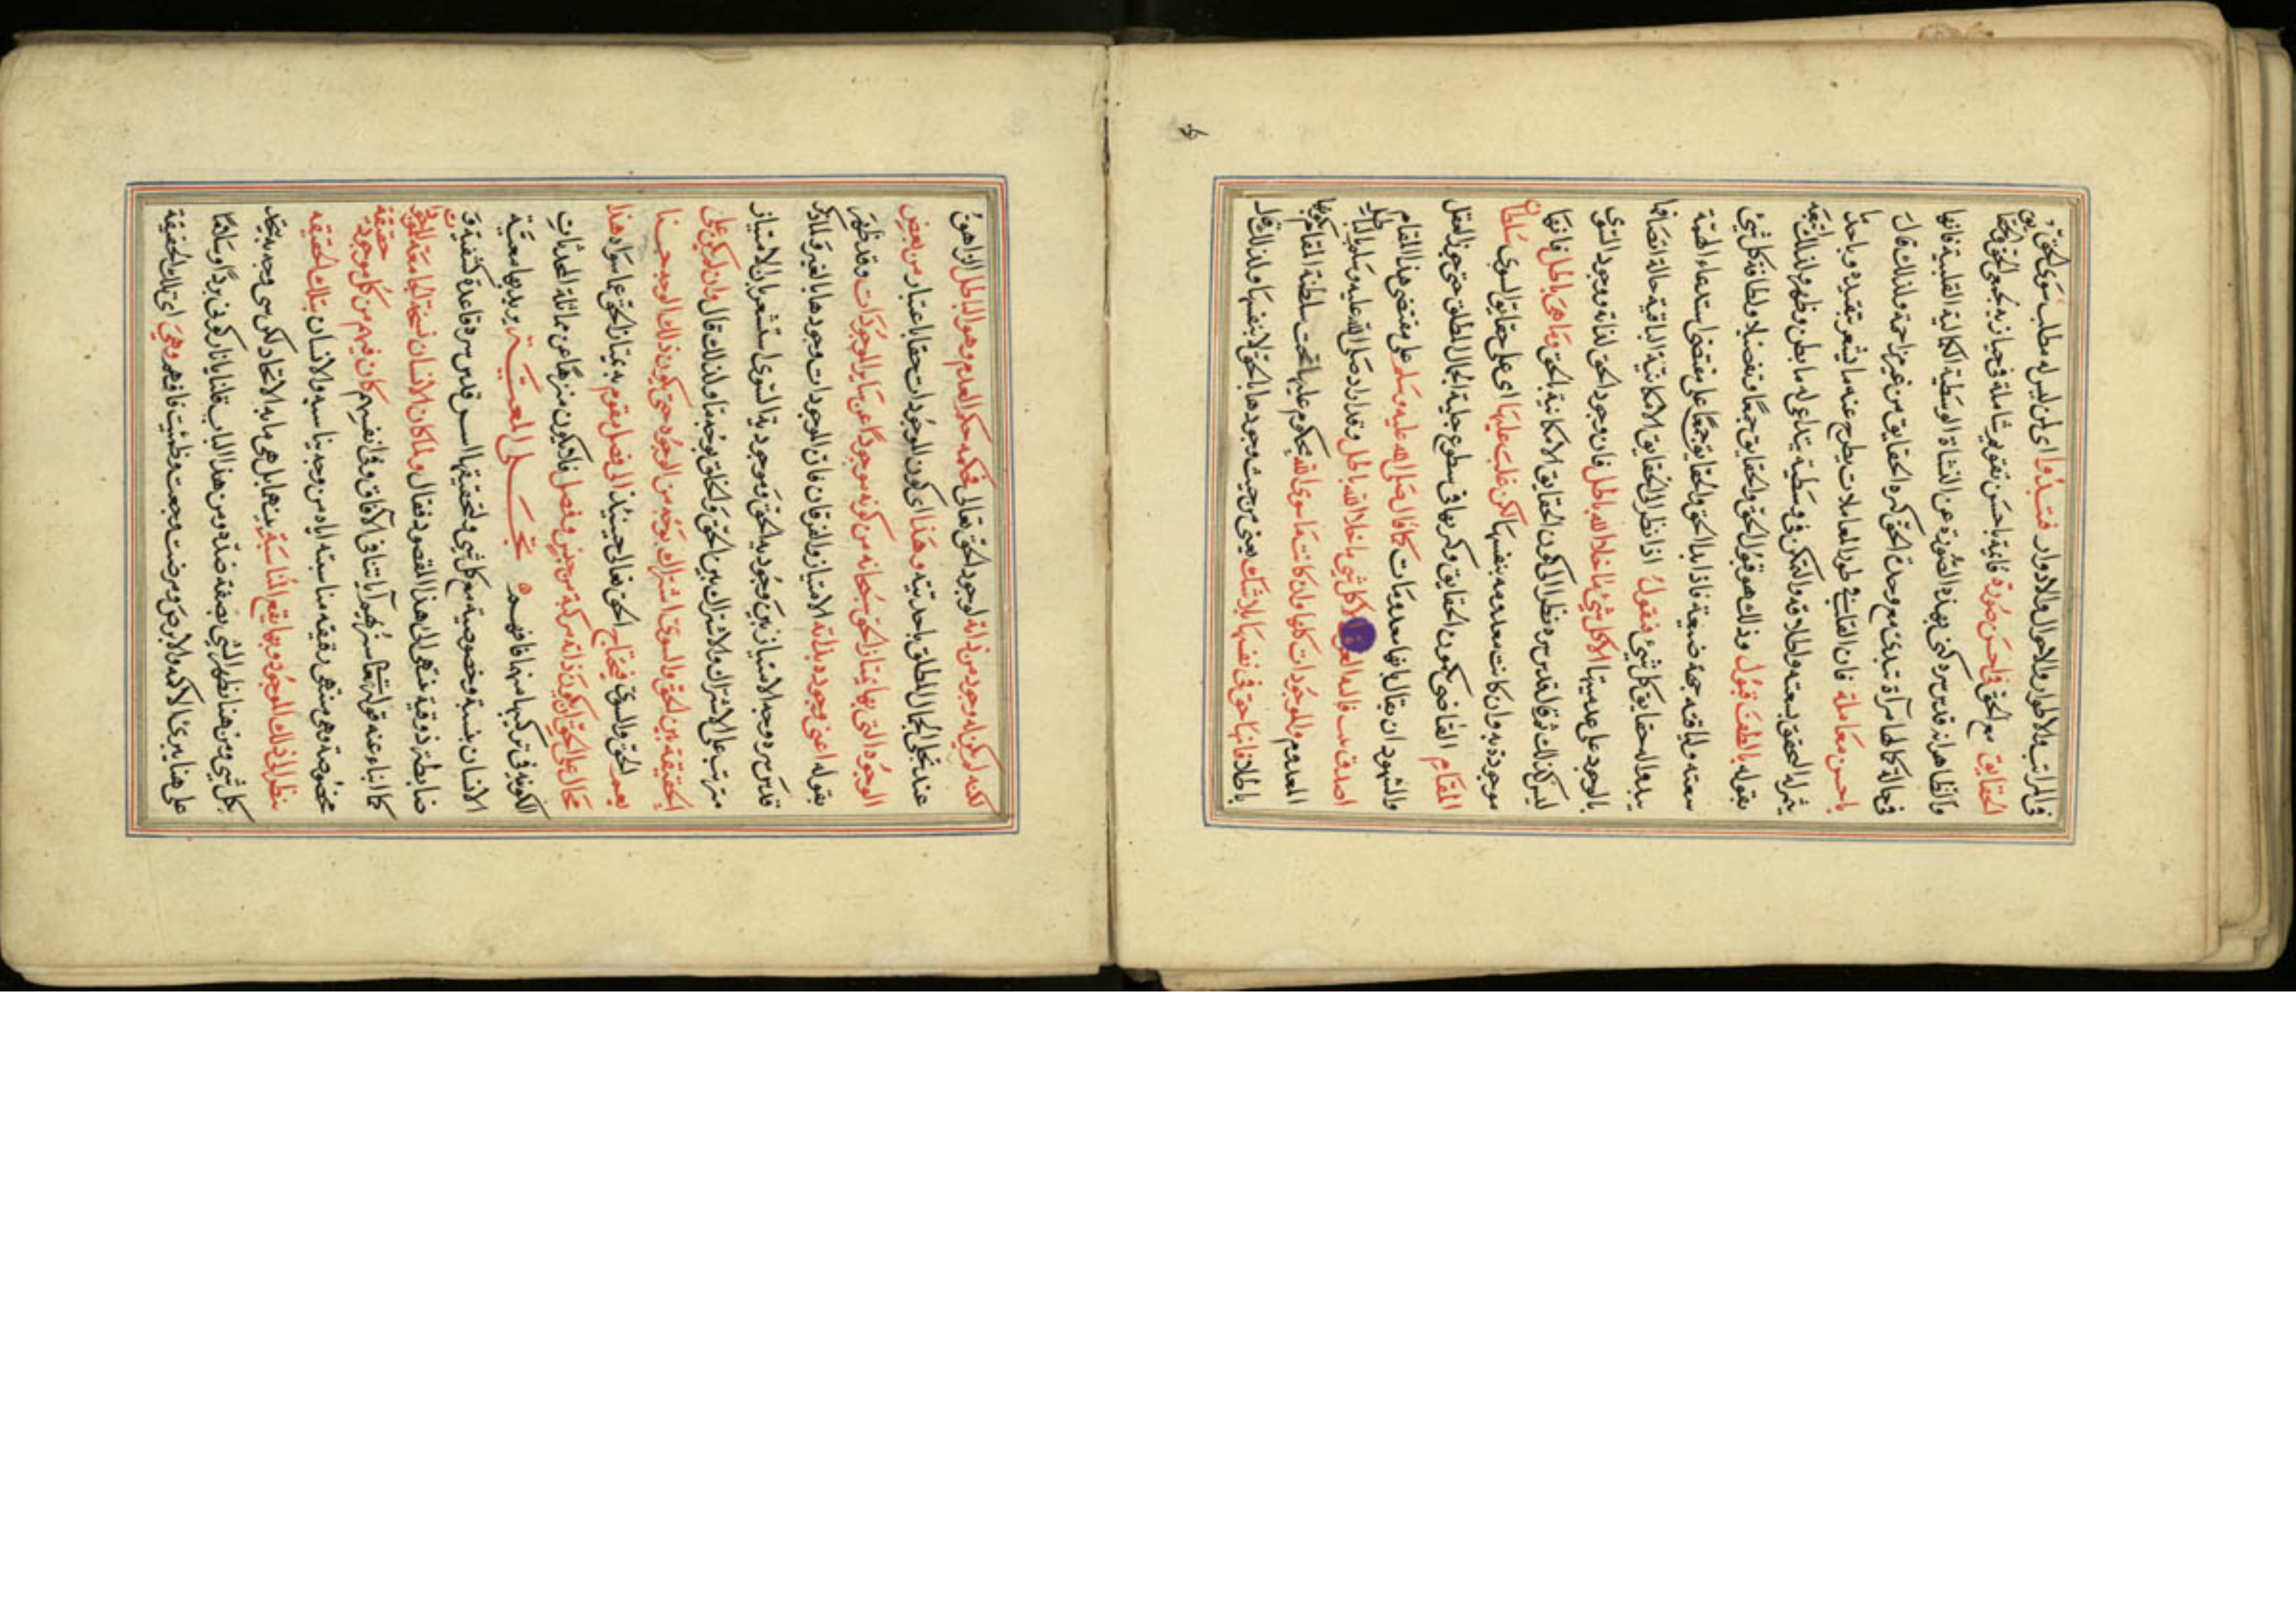 في المراتب والاطوار والاحوال والادوار فتبدوا اي لمن ليس له مطلب سوى الحق
الحقايق مع الحق في احسن صورة فانية باحسن تقويم شاملة في حيازة
والظاهر انه قدس سره كنى بهذه الصورة عن النشاة الوسطية الكمالية القلبية فانها
في حالة كمالها مرآة تبدي مع وحدة الحق كثرة الحقايق من غير مزاحمة ولذلك قال
باحسن معاملة فان القلب في طور المعاملات يطرح عنه ما يشعر بتقيده
يثمر له التحقق بسعته واطلاقه والتمكن في وسطية يتداعى له ما بطن وظهر ولذلك
بقوله بالطف قبول وذلك هو قبول الحق والحقايق جمعا وتفصيلا ولطافة كل شيء
سعته ولياقته بحمة ضيعة فاذا بدا الحق والحقايق جمعا على مقتضى استدعاء الهمة
يبدو له حقايق كل شيء فنقول اذا نظر الى الحقايق الامكانية الباقية حالة اتصافها
بالوجود على عدميتها الا كل شيء ما خلا الله باطل فان وجود الحق لذاته ووجود السوى
ليس كذلك ثم قال قدس سره نظرا الى كون الحقايق الامكانية بالحق وما هي باطل فانها
موجودة به وان كانت معدومة بنفسها لكن غلب عليها اي على حقايق السوى سلطان
المقام القاضي بكون الحقايق وكثرتها في سطوع جلية الجمال المطلق حتى جوز العقل
والشهود ان يقال بانها معدومات كما قال صلى الله عليه وسلم على مقتضى هذا المقام
اصدق بيت قالته العرب الا كل شيء ما خلا الله باطل وقد اراد صلى الله عليه وسلم بالباطل
المعدوم والموجودات كلها وان كانت ما سوى الله محكوم عليها تحت سلطنة المقام
باطلا فانها حق في نفسها بلا شك يعني من حيث وجودها بالحق لا بنفسها ولذلك قال
لكنه لم يكن له وجود من ذاته لوجود الحق تعالى فحكمه حكم العدم وهو الباطل الزهوق
عند تجلي الجمال المطلق باحديته وهذا اي كون الموجودات حقا باعتبار من بعض
الوجوه التي بها يمتاز الحق سبحانه من كونه موجودا عن ساير الموجودات وقد ظهر
بقوله اعني وجوده بذاته الامتياز والفرقان فان الموجودات وجودها بالغير فلما ذكر
قدس سره وجه الامتياز بين وجودية الحق وموجودية السوى استشعر بان الامتياز
مترتب على الاشتراك ولا اشتراك بين الحق والخلق بوجه ما ولذلك قال وان لم يكن على
الحقيقة بين الحق والسوى اشتراك بوجه من الوجوه حتى يكون ذلك الوجه جنسا
يعم الحق والسوى فيحتاج الحق تعالى حينئذ الى فصل مقوم به يمتاز الحق عما سواه هذا
محال على الحق ان يكون ذاته مركبة من جنس وفصل فانه يكون منزها عن مماثلة المحدثات
الكونية في تركيبها منها فافهم ٥ تجلى المعية يريد بها معية
الانسان بنسبة وخصوصية مع كل شيء ولتحقيقها اسس قدس سره قاعدة كشفية و
ضابطة ذوقية تنتهي الى هذا المقصود فقال ولما كان الانسان نسخة جامعة للموجودات
كما انباء عنه قوله تعالى سنريهم آياتنا في الآفاق وفي انفسهم كان فيهم من كل موجود حقيقة
مخصوصة وهي منتهى رقيقة مناسبته اياه من وجه يناسبه والانسان بتلك الحقيقة
ينظر الى ذلك الموجود وبها تقع المناسبة بينهما بل هي ما به الاتحاد لكن من وجه به يتحد
بكل شيء ومن هنا ظهر الشيء بصفة ضده ومن هذا الباب قلنا يا نار كوني بردا وسلاما
على هنا يبرئ الاكمه والابرص ومرضت وجعت وظمئت فافهم وهي اي تلك الحقيقة